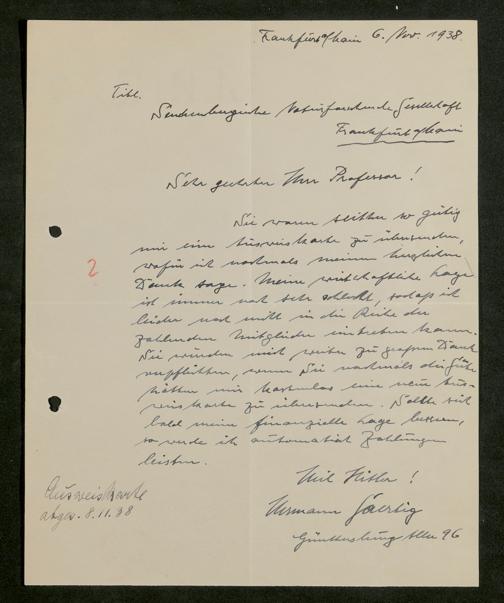 Frankfurt a/Main 6. Nov. 1938.
Titl.
Senckenbergische Naturforschende Gesellschaft
Frankfurt a/Main
Sehr geehrter Herr Professor!
Sie waren seither so gütig
mir eine Ausweiskarte zu übersenden,
wofür ich nochmals meinen herzlichen
Dank sage. Meine wirtschaftliche Lage
ist immer noch sehr schlecht, sodaß ich
leider noch nicht in die Reihe der
zahlenden Mitglieder eintreten kann.
Sie würden mich weiter zu großem Dank
verpflichten, wenn Sie nochmals die Güte
hätten mir kostenlos eine neue Aus-
weiskarte zu übersenden. Sollte sich
bald meine finanzielle Lage bessern,
so werde ich automatisch Zahlungen
leisten.
Heil Hitler!
Hermann
Allee 96
2
Ausweiskarte
abges. 8.11.38